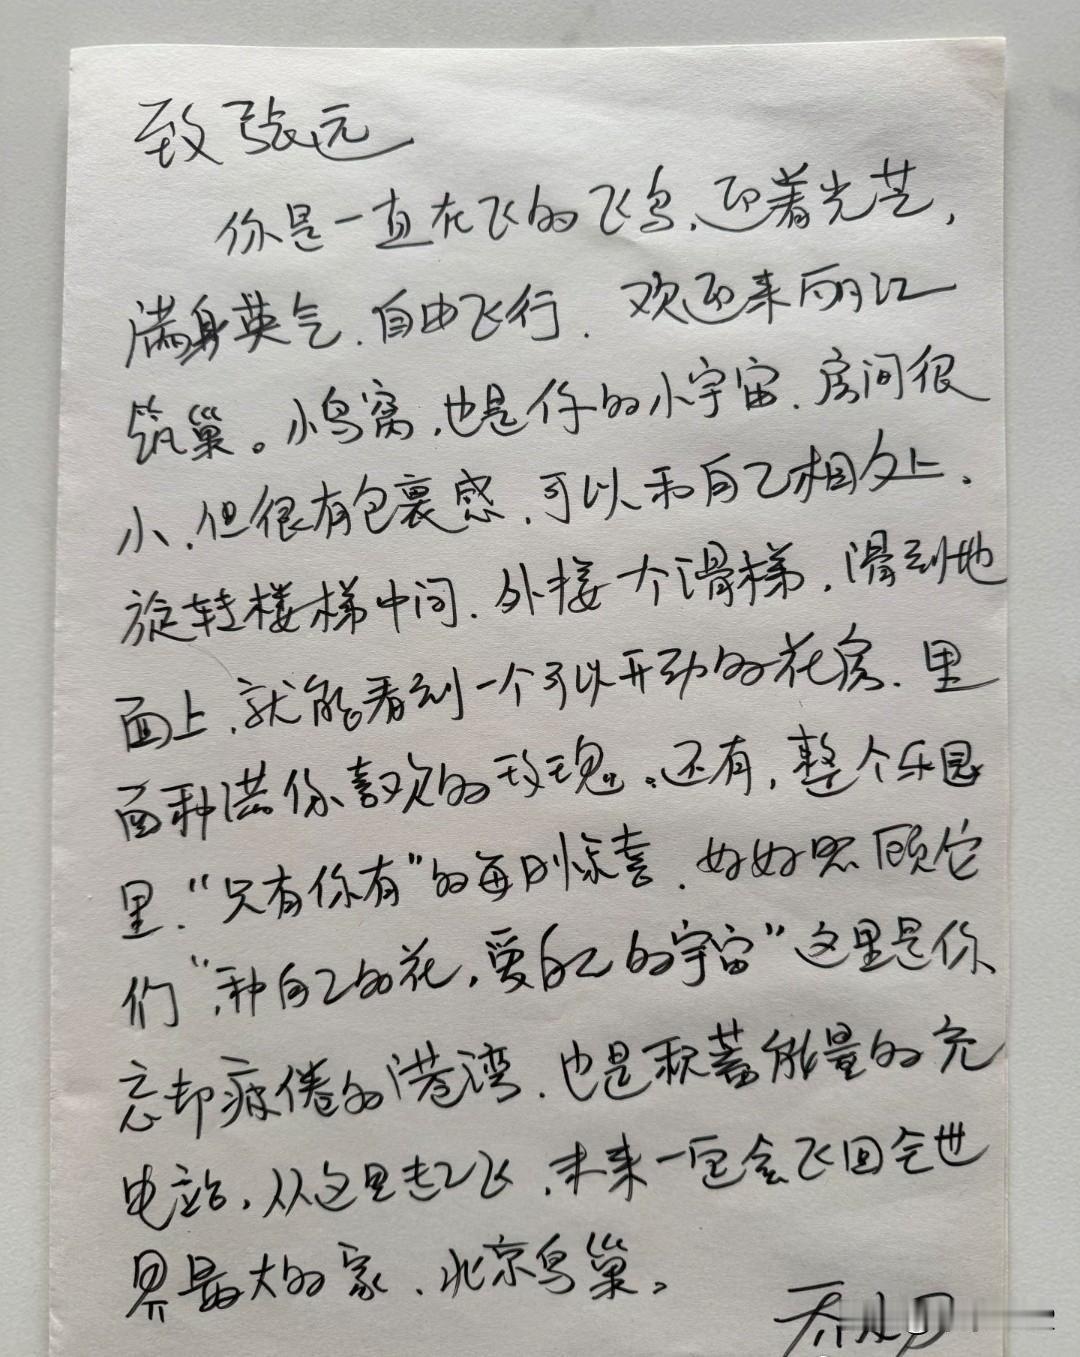 致张远
你是一直在飞的飞鸟、迎着光芒，
满身英气、自由飞行、欢迎来丽江
筑巢。小鸟窝，也是你的小宇宙、房间很
小、但很有包裹感、可以和自己相处、
旋转楼梯中间、外接个滑梯，滑到地
面上、就能看到一个可以开动的花房、里
面种满你喜欢的玫瑰。还有，整个乐园
里、“只有你有”的每日惊喜、好好照顾它
们“种自己的花，爱自己的宇宙”这里是你
忘却疲倦的港湾、也是积蓄能量的充
电站，从这里起飞、未来一定会飞回全世
界最大的家、北京鸟巢。